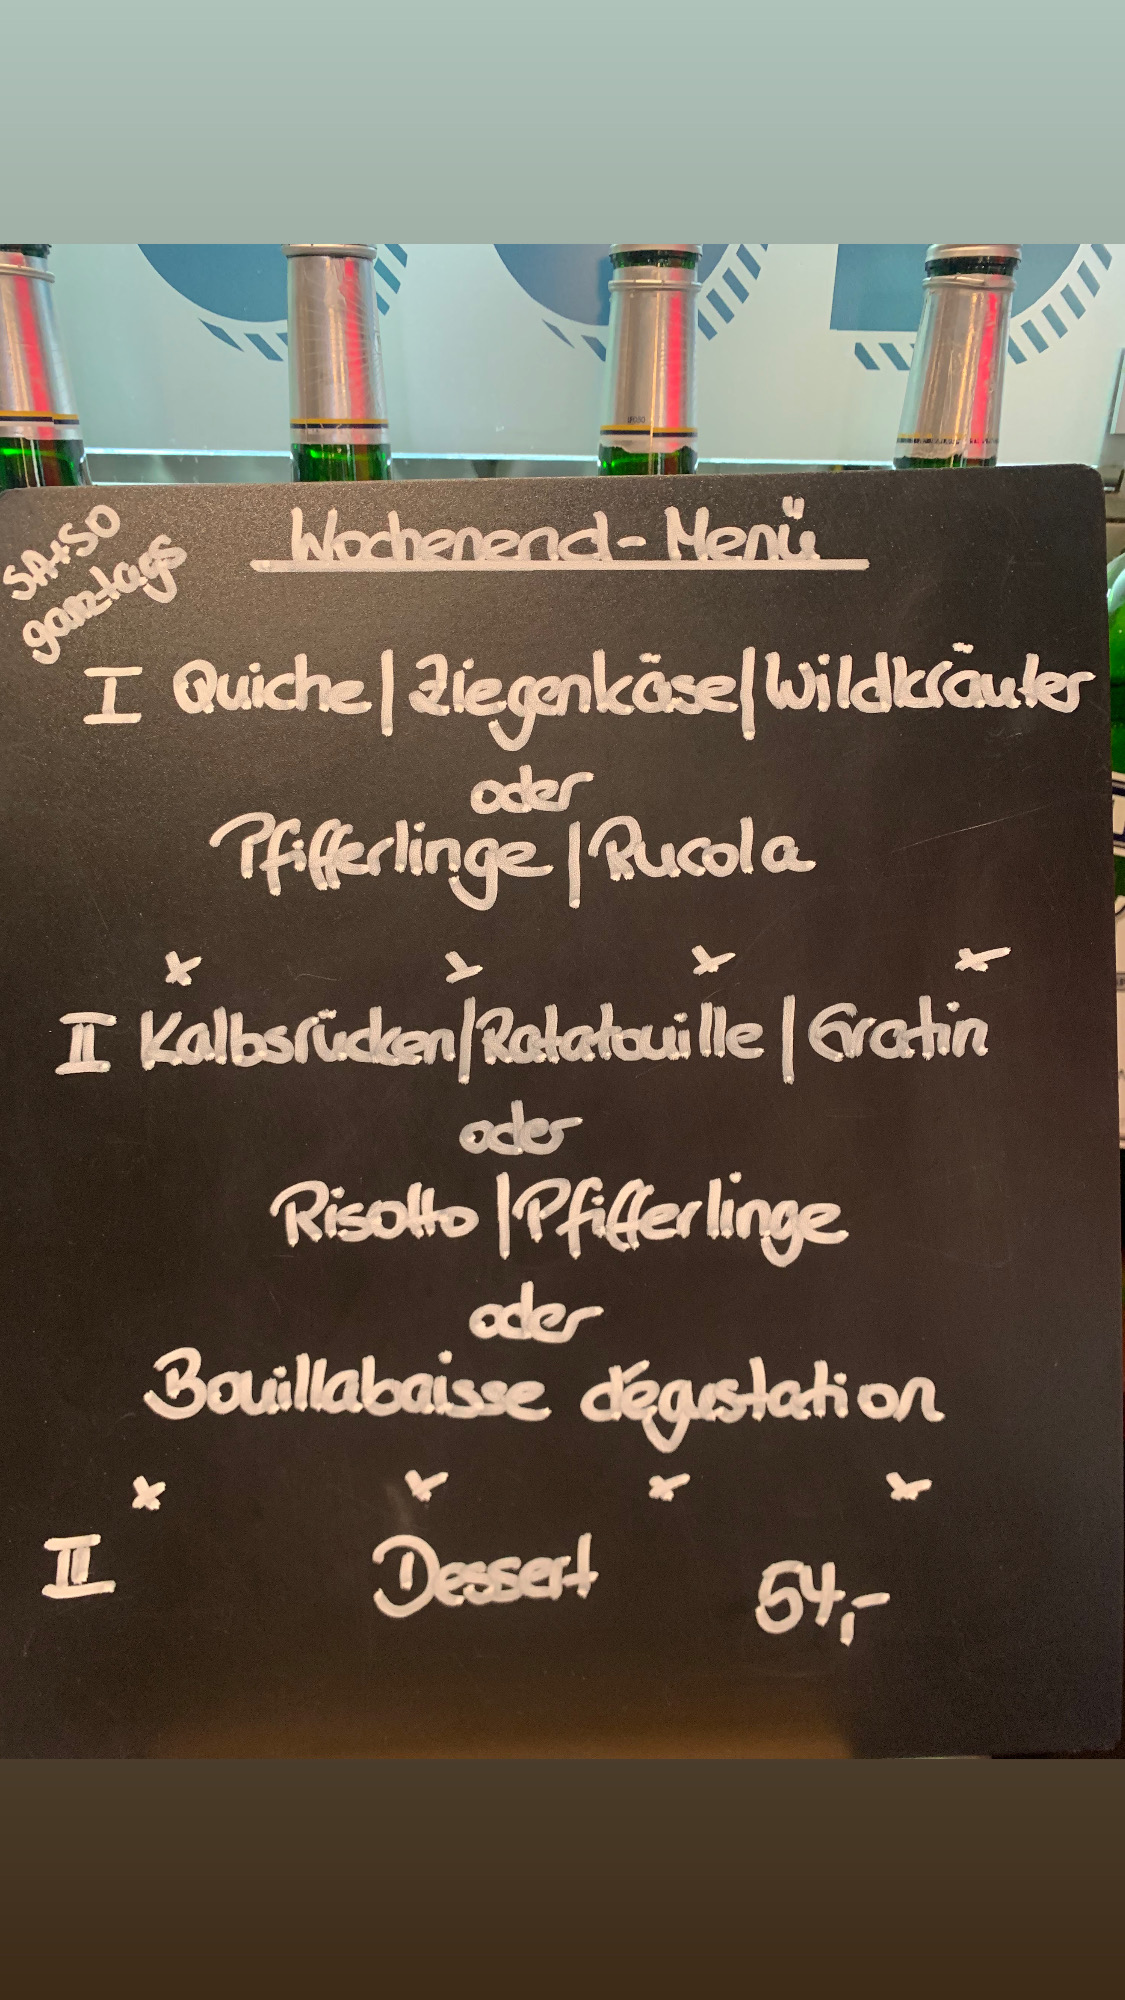 SA+SO
ganztags
Wochenend-Menü
I Quiche/Ziegenkäse/Wildkräuter
oder
Pfifferlinge/Rucola
x x x x
II Kalbsrücken/Ratatouille/Gratin
oder
Risotto/Pfifferlinge
oder
Bouillabaisse dégustation
x x x x
III Dessert 54,-